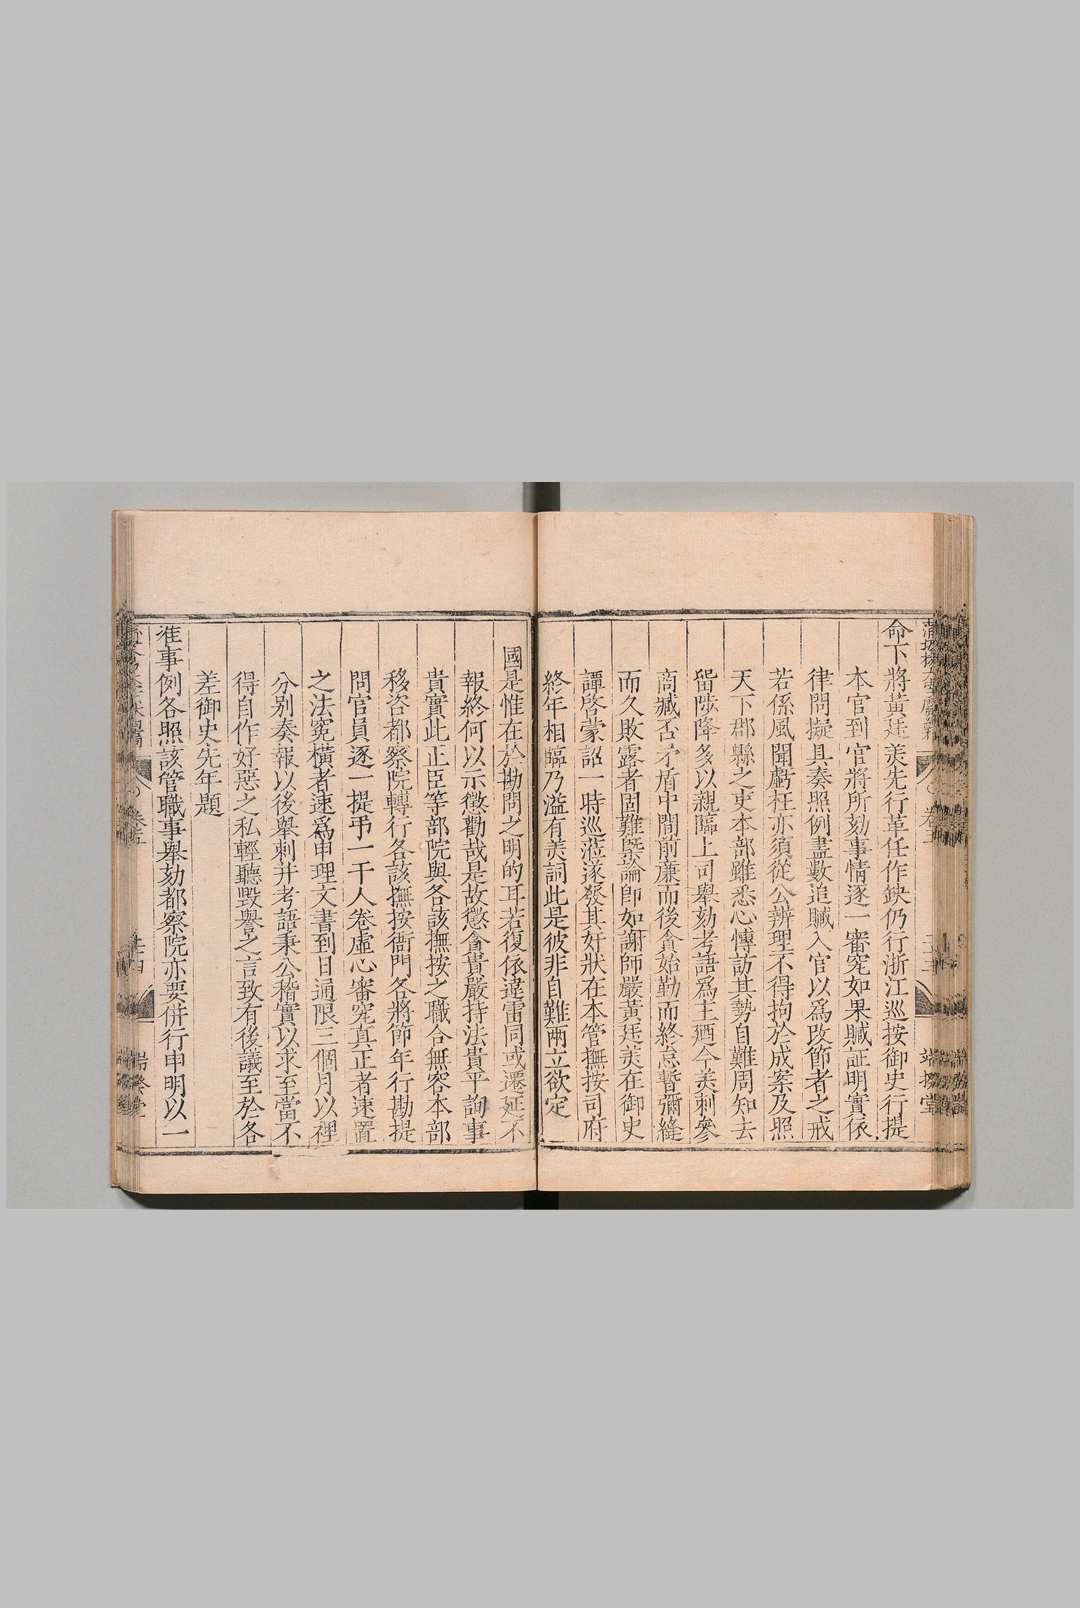 命下將黃廷美先行革任作缺仍行浙江巡按御史行提
本官到官將所劾事情逐一審究如果贓証明實依
律問擬具奏照例盡數追贓入官以爲改節者之戒
若係風聞虧枉亦須從公辨理不得拘於成案及照
天下郡縣之吏本部雖悉心慱訪其勢自難周知去
留陟降多以親臨上司舉劾考語爲主廼今美刺參
商臧否矛盾中間前廉而後貪始勤而終怠暫彌縫
而久敗露者固難槩論卽如謝師嚴黃廷美在御史
譚啓蒙詔一時巡蒞遂發其奸狀在本管撫按司府
終年相臨乃溢有美詞此是彼非自難兩立欲定
國是惟在於勘問之明的耳若復依違雷同或遷延不
報終何以示懲勸哉是故懲貪貴嚴持法貴平詢事
貴實此正臣等部院與各該撫按之職合無容本部
移咨都察院轉行各該撫按衙門各將節年行勘提
問官員逐一提弔一干人卷虛心審究真正者速置
之法寃橫者速爲申理文書到日通限三個月以裡
分别奏報以後舉刺并考語秉公稽實以求至當不
得自作好惡之私輕聽毀譽之言致有後議至於各
差御史先年題
准事例各照該管職事舉劾都察院亦要併行申明以一